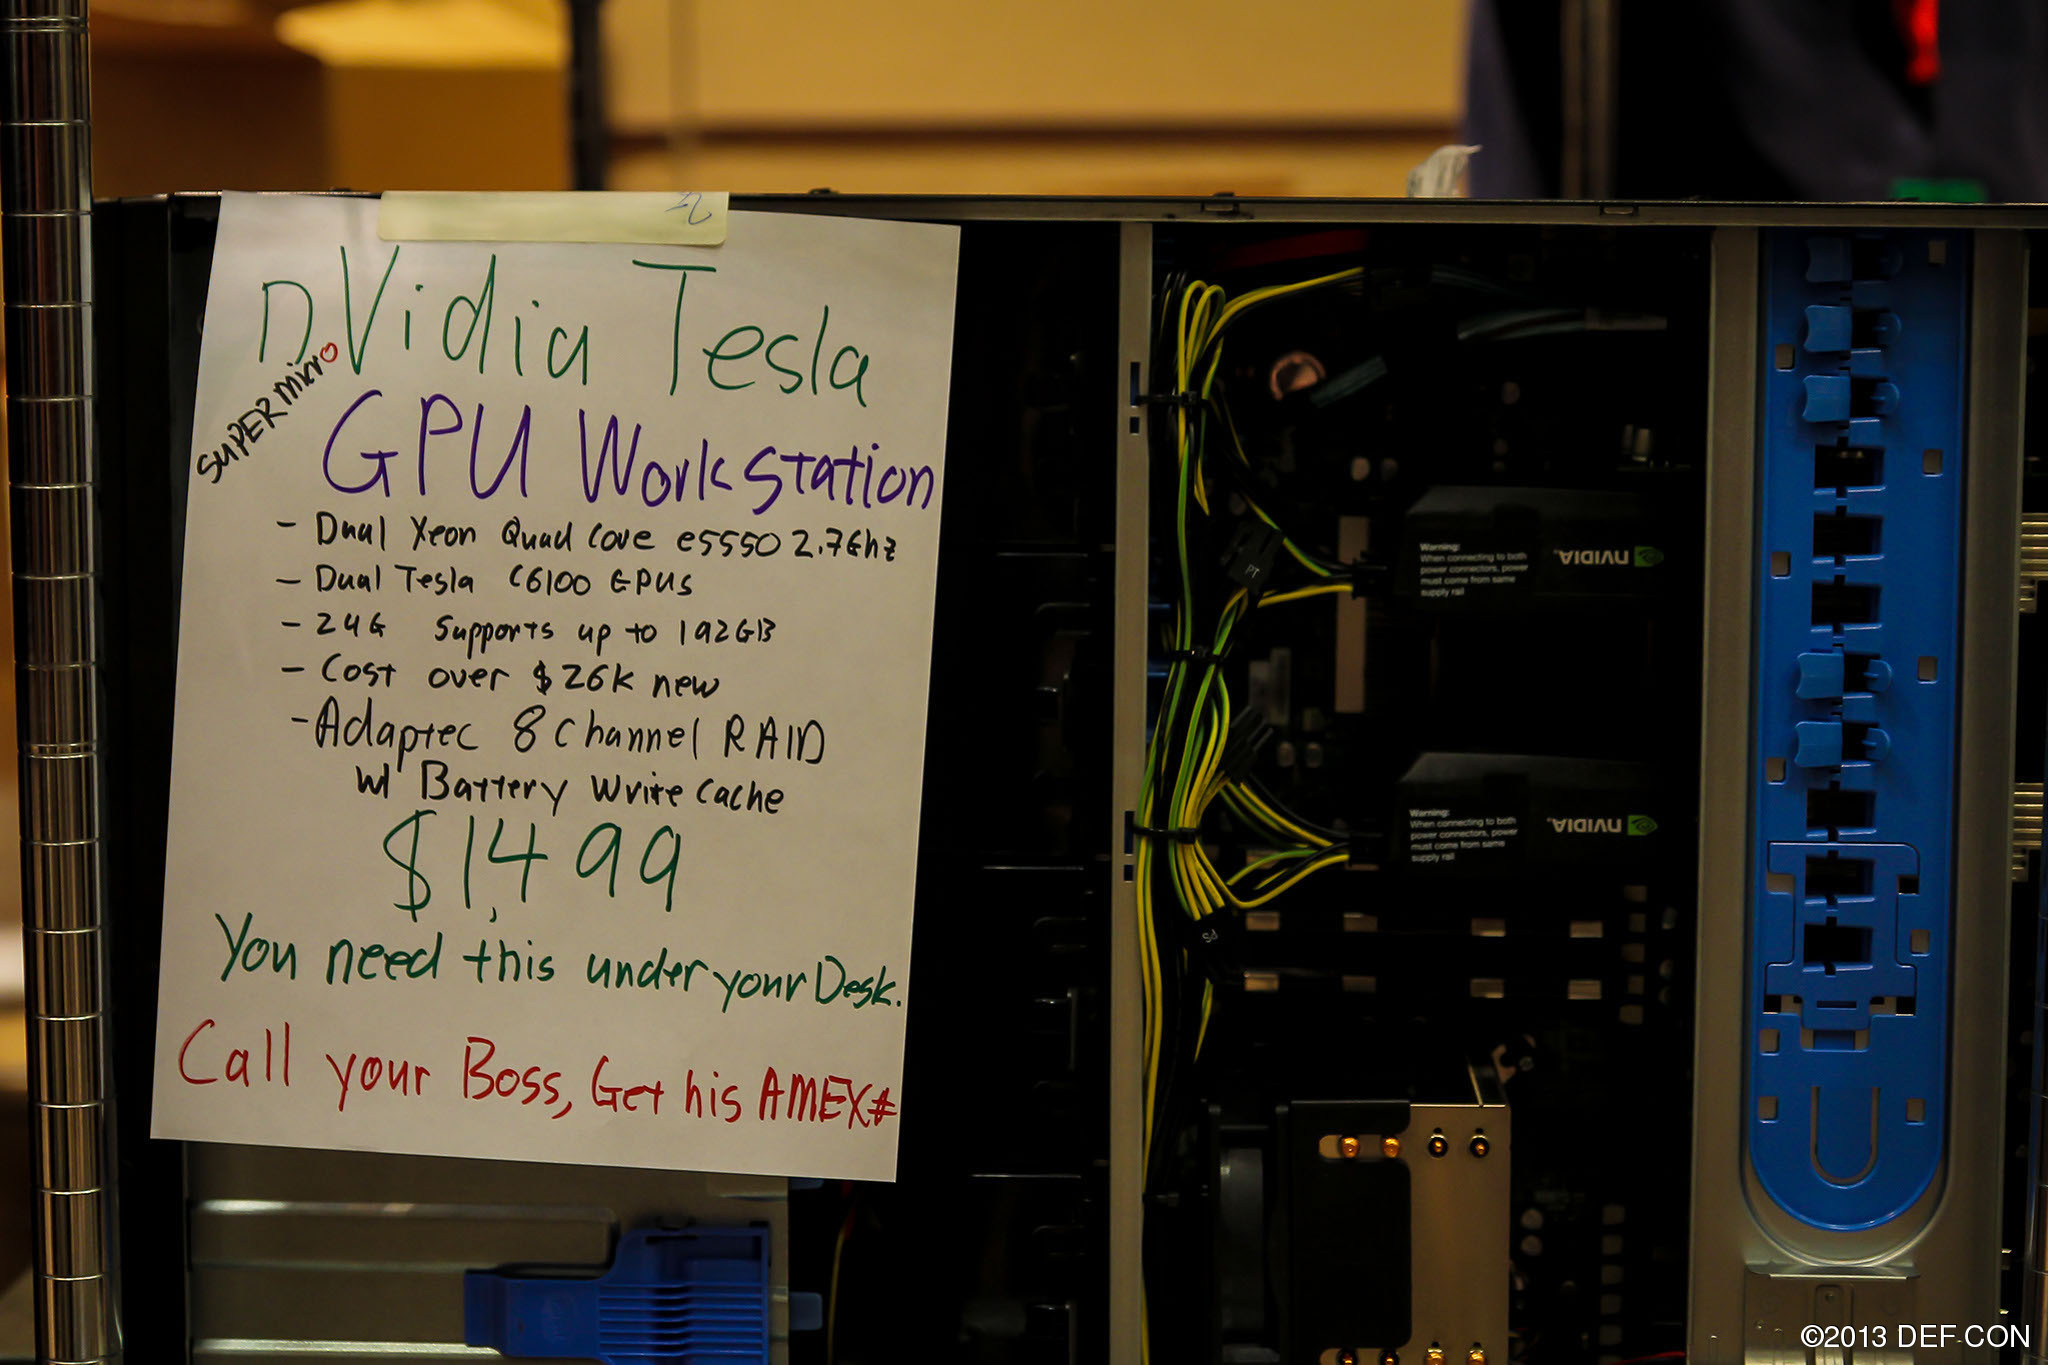 nVidia Tesla
SUPERmicro
GPU Workstation
- Dual Xeon Quad Core e5550 2.7Ghz
- Dual Tesla C6100 GPUs
- 24G Supports up to 192GB
- Cost over $26K new
- Adaptec 8 Channel RAID
w/ Battery Write Cache
$1,499
You need this under your Desk.
Call your Boss, Get his AMEX#
Warning:
When connecting to both
power connectors, power
must come from same
supply rail
NVIDIA
Warning:
When connecting to both
power connectors, power
must come from same
supply rail
NVIDIA
©2013 DEF-CON